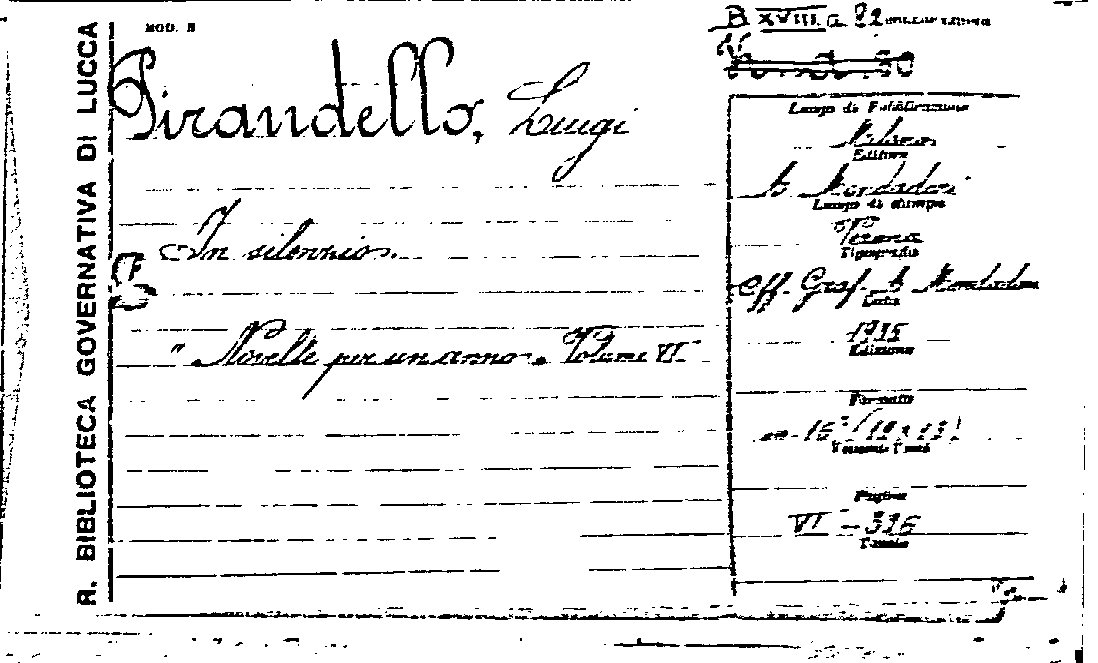 R. BIBLIOTECA GOVERNATIVA DI LUCCA
MOD. B
B XVIII. a 82
Pirandello, Luigi
In silenzio.
"Novelle per un anno" Volume VI
Luogo di Pubblicazione
Milano
Editore
A Mondadori
Luogo di stampa
Verona
Tipografia
Off. Graf. A Mondadori
Data
1935
Edizione
Formato
in 16° (19 x 13)
Volumi-Tomi
Pagine
VI - 326
Tavole